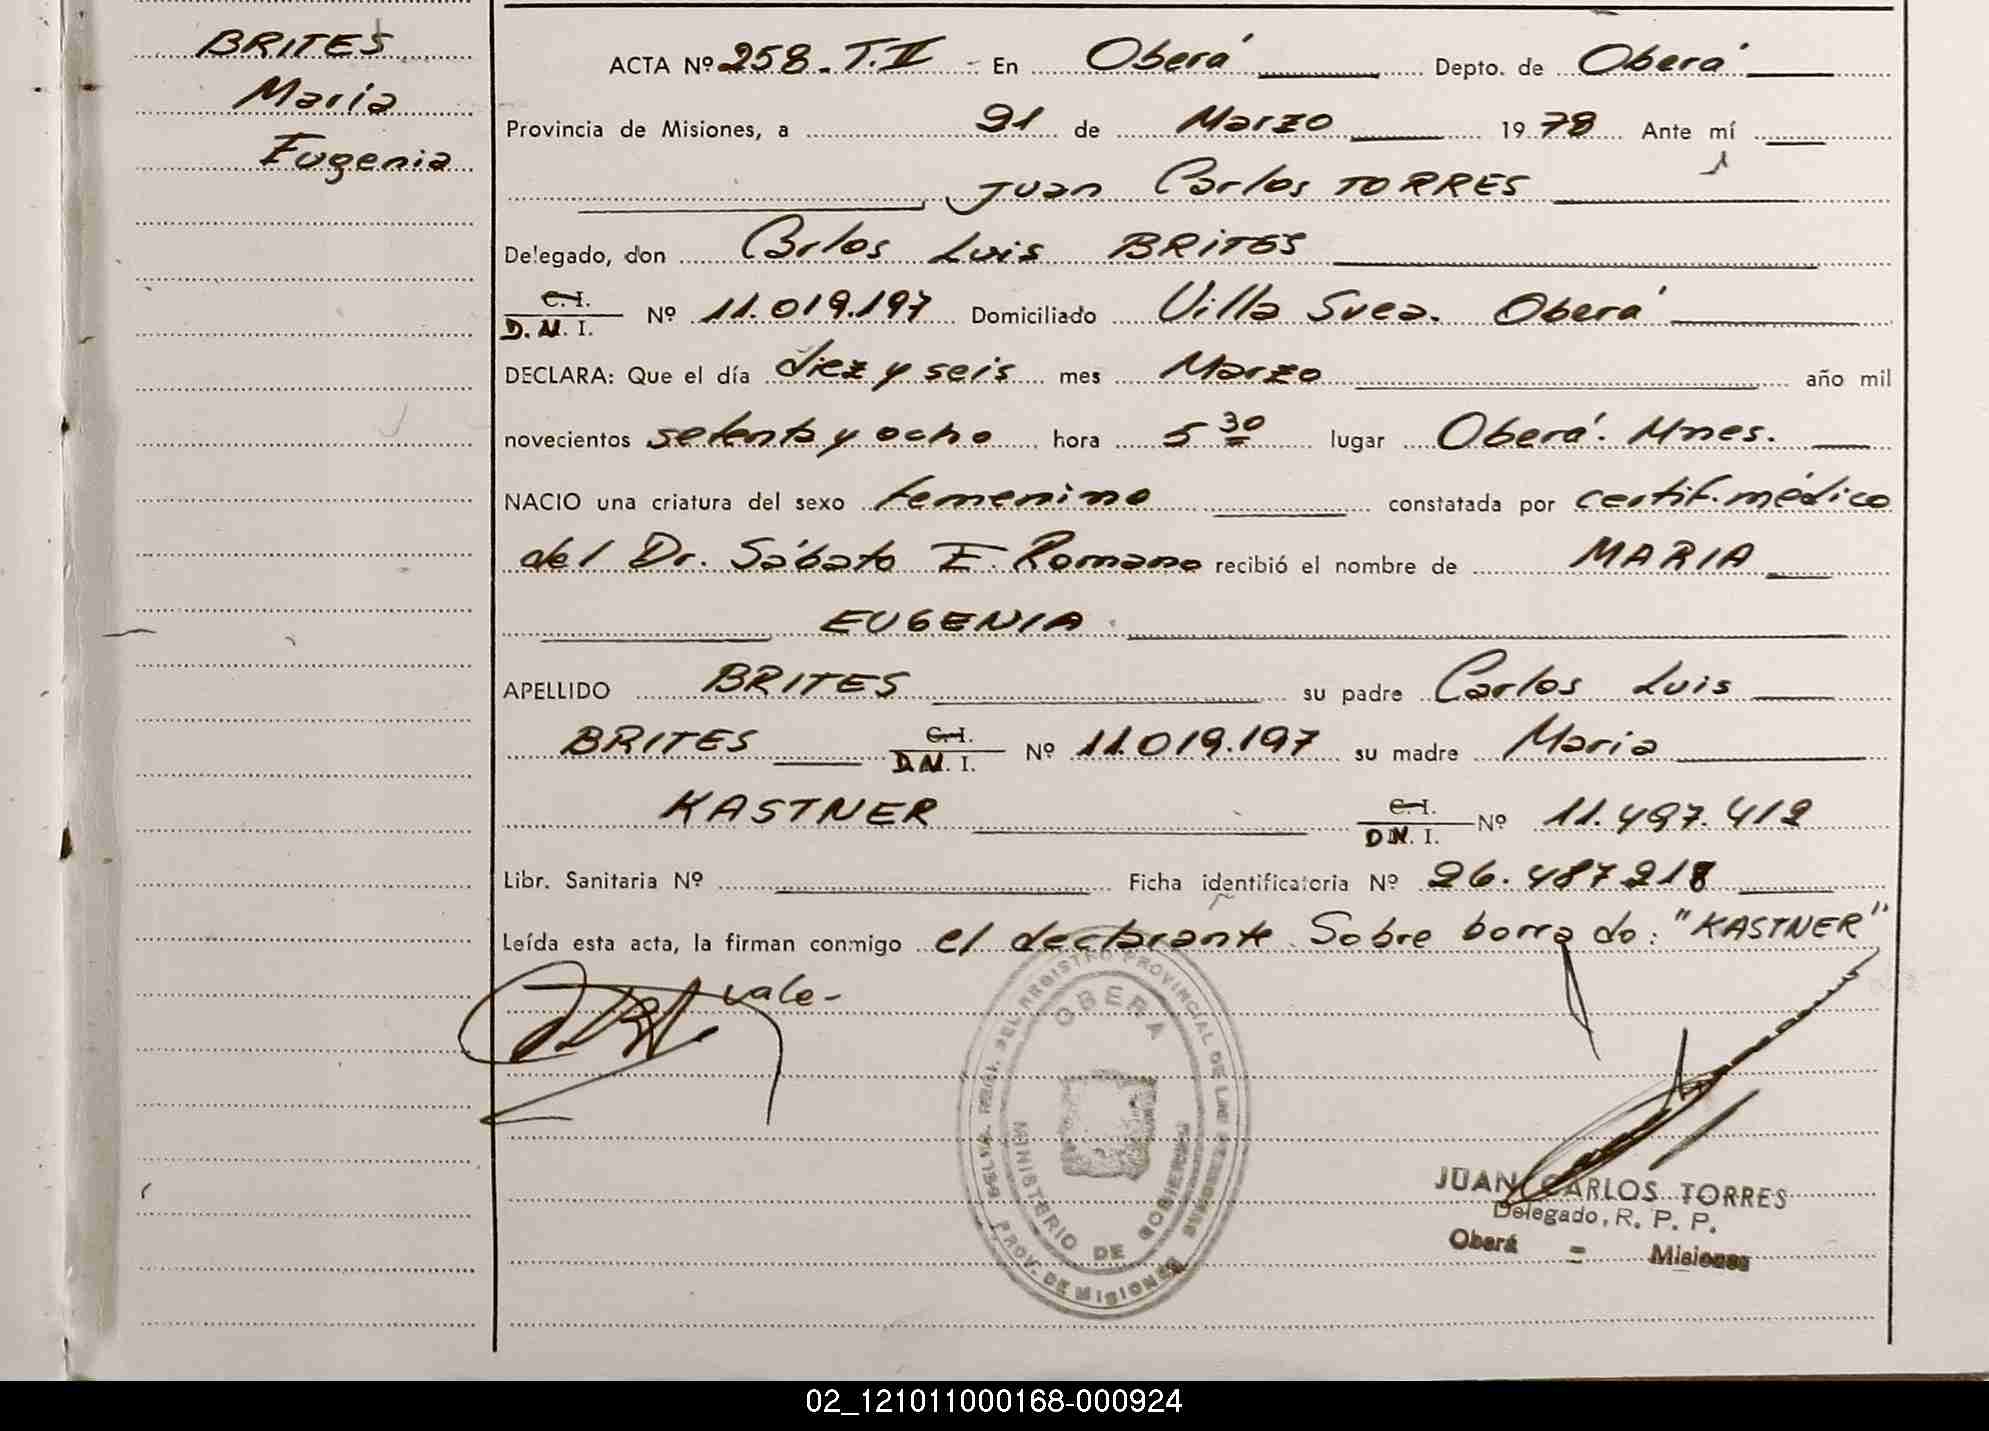 BRITES
Maria
Eugenia
ACTA Nº 258. T. II - En Oberá Depto. de Oberá
Provincia de Misiones, a 21 de Marzo 1978 Ante mí
Juan Carlos TORRES
Delegado, don Carlos Luis BRITES
C. I.
D. N. I. Nº 11.019.197 Domiciliado Villa Svea. Oberá
DECLARA: Que el día diez y seis mes Marzo año mil
novecientos setenta y ocho hora 5 30 lugar Oberá. Mnes.
NACIO una criatura del sexo femenino constatada por certif. médico
del Dr. Sábato E. Romano recibió el nombre de MARIA
EUGENIA
APELLIDO BRITES su padre Carlos Luis
BRITES C. I. D. N. I. Nº 11.019.197 su madre Maria
KASTNER C. I. D. N. I. Nº 11.497.412
Libr. Sanitaria Nº Ficha identificatoria Nº 26.487218
Leída esta acta, la firman conmigo el declarante. Sobre borrado: "KASTNER"
vale-
OBERA
MINISTERIO DE GOBIERNO
PROV. DE MISIONES
JUAN CARLOS TORRES
Delegado, R. P. P.
Oberá = Misiones
02_121011000168-000924